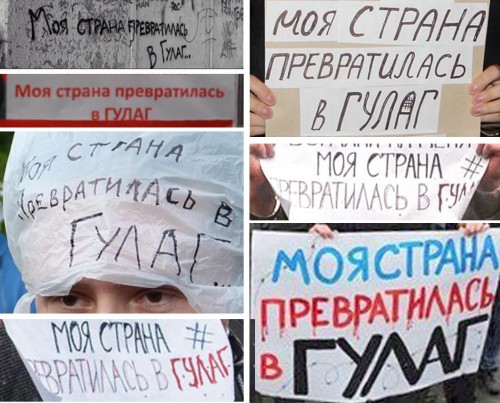 Моя страна превратилась
в Гулаг...
Моя страна превратилась
в ГУЛАГ
Моя страна
превратилась в
ГУЛАГ...
МОЯ СТРАНА #
ПРЕВРАТИЛАСЬ В ГУЛАГ
МОЯ СТРАНА
ПРЕВРАТИЛАСЬ
В ГУЛАГ
МОЯ СТРАНА #
ПРЕВРАТИЛАСЬ В ГУЛАГ
МОЯ СТРАНА
ПРЕВРАТИЛАСЬ
В ГУЛАГ